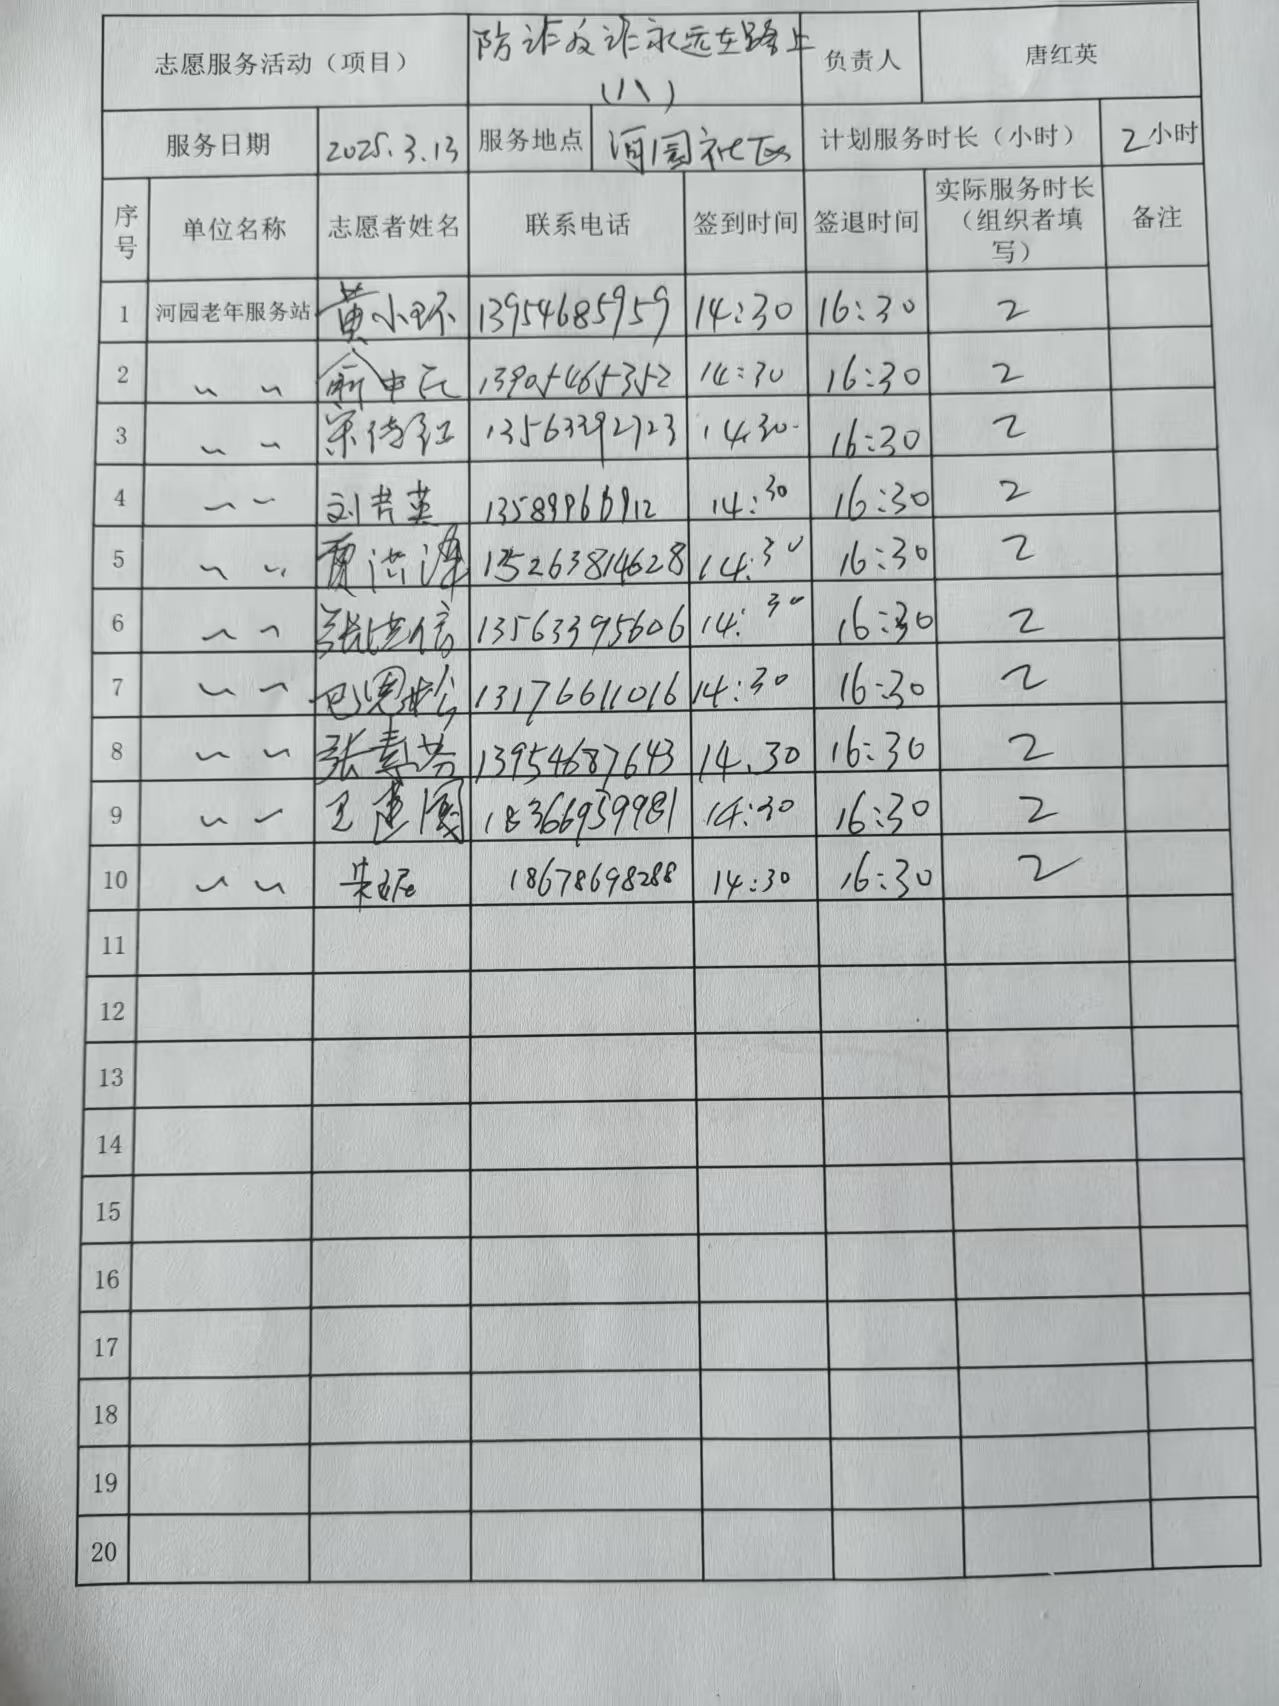 志愿服务活动（项目） 防诈反诈永远在路上（八） 负责人 唐红英
服务日期 2025.3.13 服务地点 河园社区 计划服务时长（小时） 2小时
序号 单位名称 志愿者姓名 联系电话 签到时间 签退时间 实际服务时长（组织者填写） 备注
1 河园老年服务站 黄小环 13954685959 14:30 16:30 2
2 〃 〃 俞中民 13905465352 14:30 16:30 2
3 〃 〃 宋传红 13563392723 14.30 16:30 2
4 〃 〃 刘书英 13589966912 14:30 16:30 2
5 〃 〃 贾洪泽 15263814628 14:30 16:30 2
6 〃 〃 张洪信 13563395606 14:30 16:30 2
7 〃 〃 巴恩松 13176611016 14:30 16:30 2
8 〃 〃 张素芬 13954687643 14.30 16:30 2
9 〃 〃 王建国 18366959981 14:30 16:30 2
10 〃 〃 朱 18678698288 14:30 16:30 2
11
12
13
14
15
16
17
18
19
20